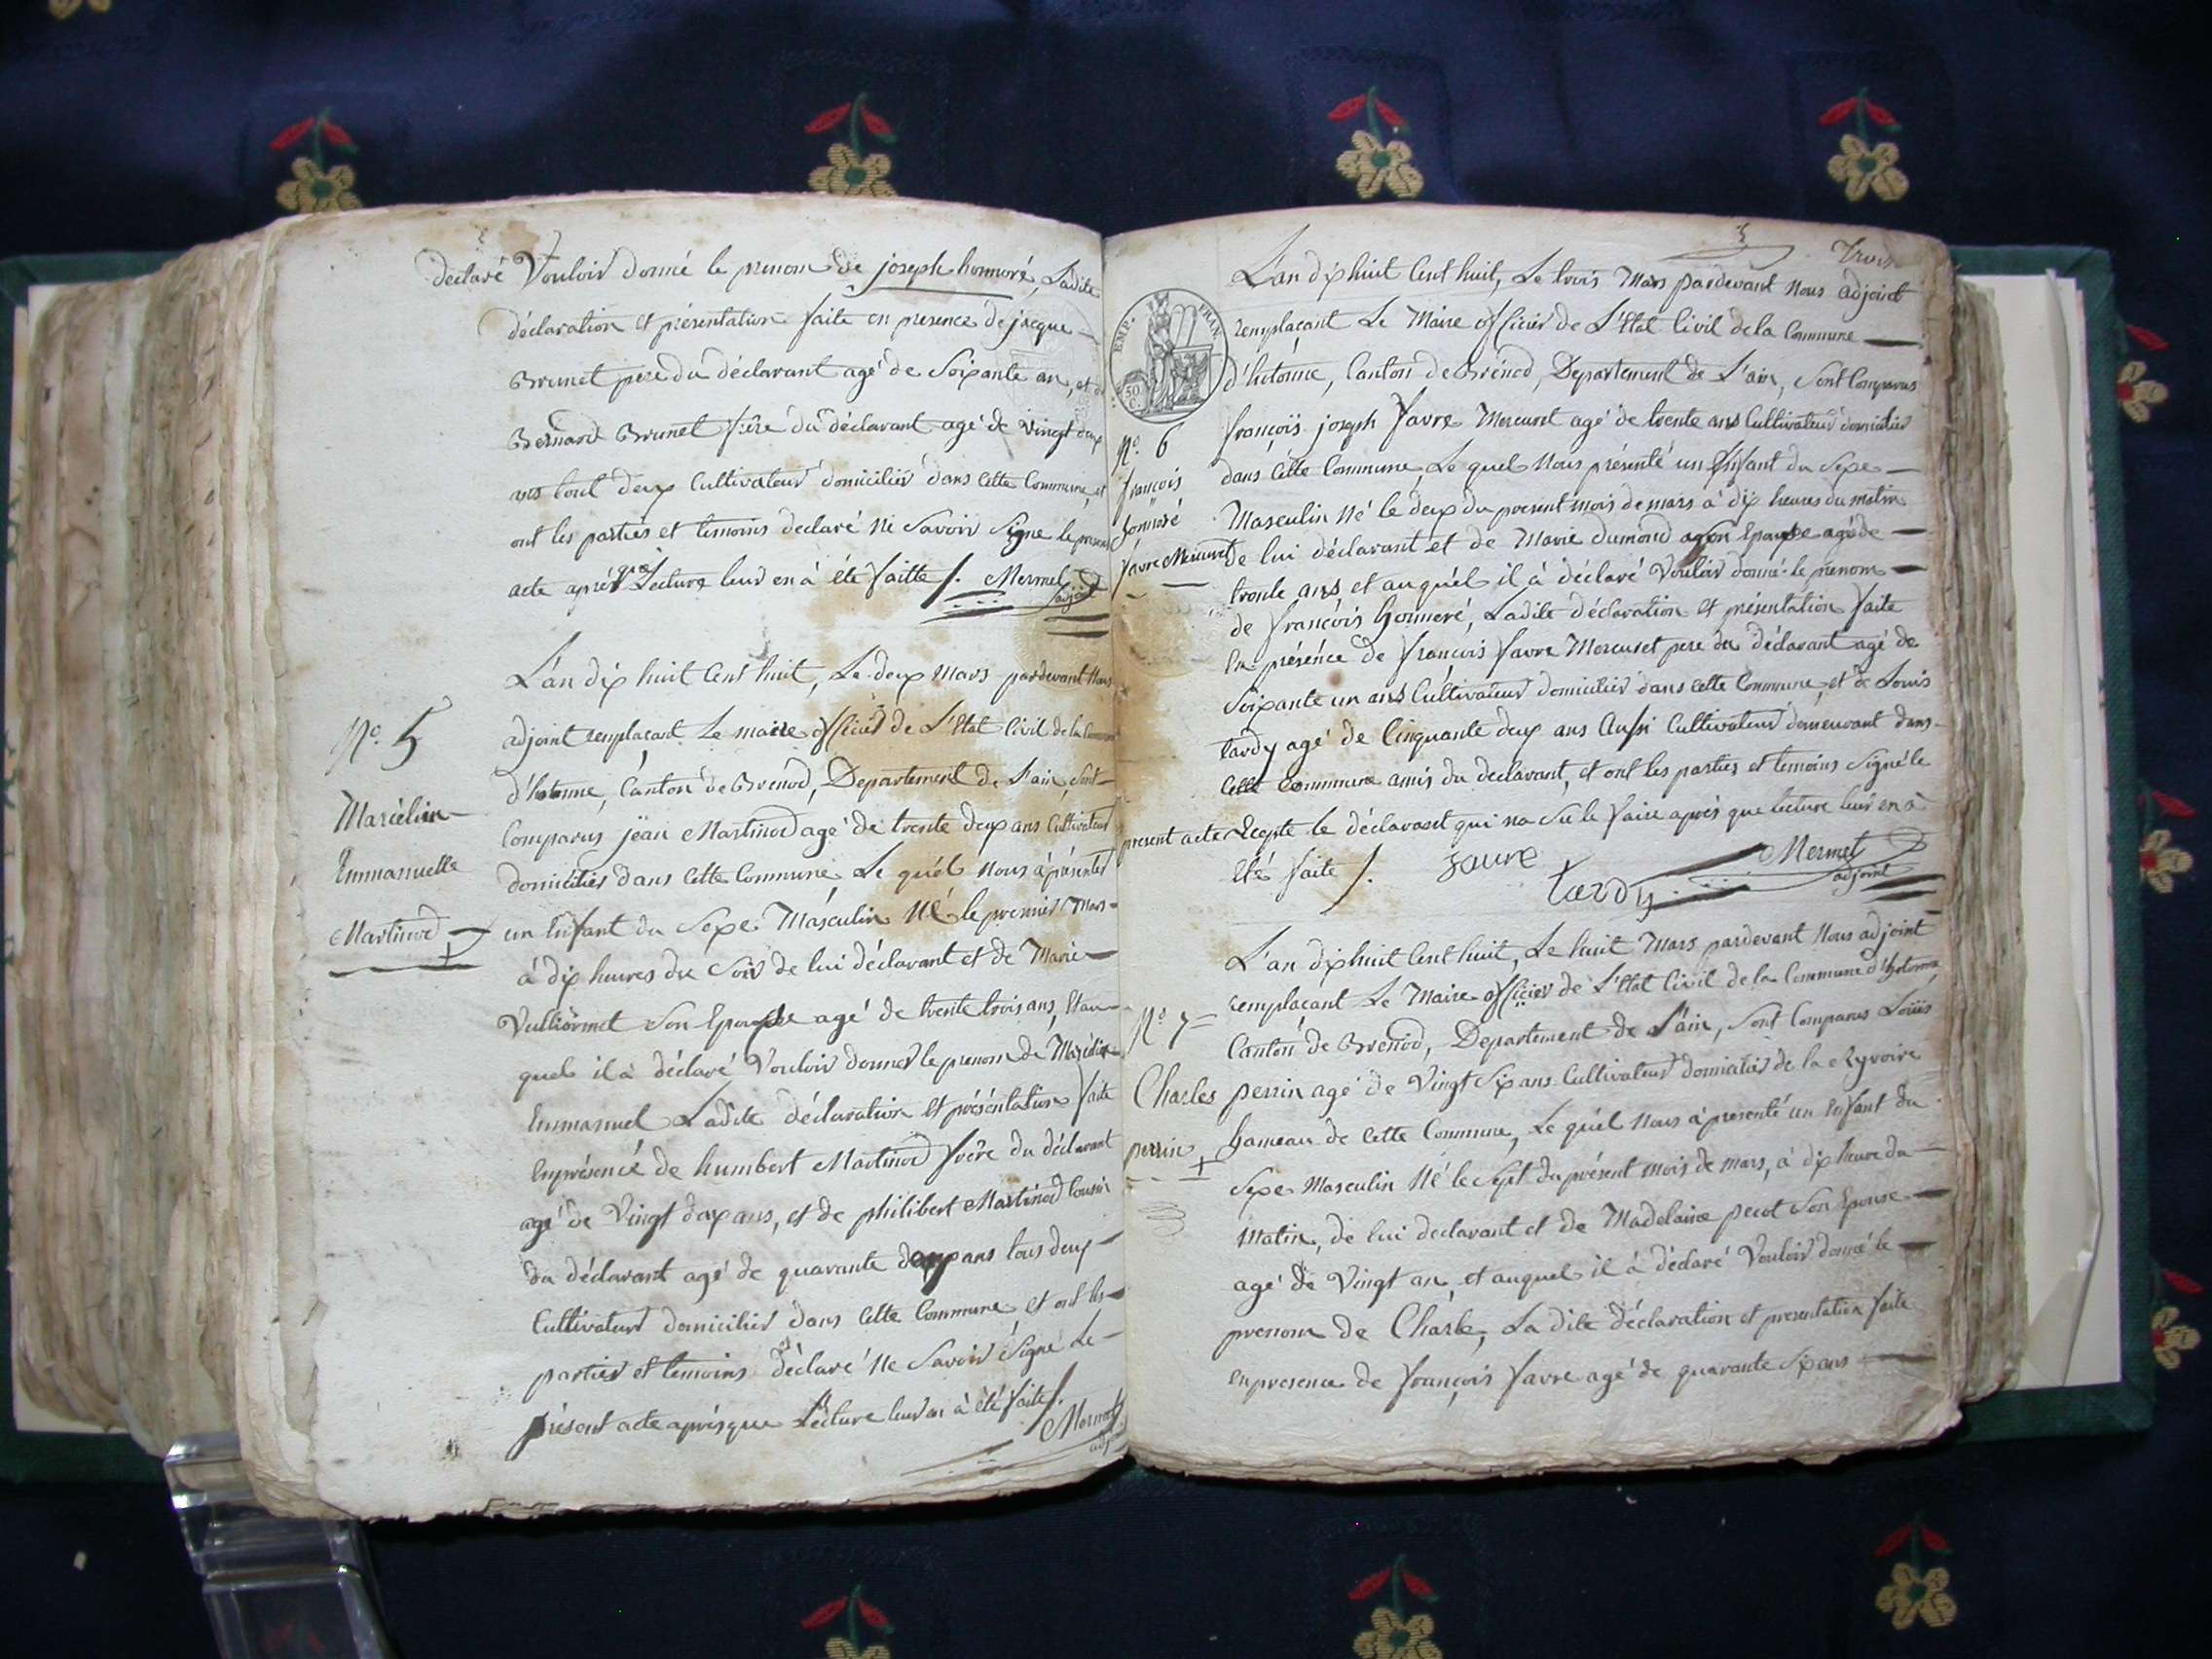 declaré Vouloir donné le prenom de joseph honnoré, Ladite
déclaration et présentation faite en presence de jacque
Brunet pere du déclarant agé de Soixante an, et de
Bernard Brunet frêre du déclarant agé de Vingt deux
ans tout deux Cultivateur domicilier dans cette Commune, et
ont les parties et temoins declaré ne Savoir Signe le present
acte aprés que Lecture leur en à été faitte /. Mermet
adjoint
N.o 5
Marcélin
Emmanuelle
Martinod
L'an dix huit Cent huit, Le deux Mars pardevant Nous
adjoint remplaçant Le maire officier de L'Etat Civil de la Commune
d'hotonne, Canton de Brenod, Departement de L'ain, Sont
Comparus jëan Martinod agé de trente deux ans Cultivateur
domicilier dans Cette Commune Le quél Nous à présenter
un Enfant du Sexe Masculin Né le premier Mars
à dix heures du Soir de lui déclarant et de Marie
Vulliormet Son Epouse agé de trente trois ans, Et au
quel il à déclaré Vouloir donner le prenom de Marcélin
Emmanuel Ladite déclaration Et présentation faite
En présence de humbert Martinod frêre du déclarant
agé de Vingt deux ans, et de philibert Martinod Cousin
du déclarant agé de quarante deux ans tous deux
Cultivateur domicilier dans Cette Commune, et ont les
parties et temoins déclaré Ne Savoir Signé Le
présent acte après que Lecture leur en à été faite /.
Mermet
adjoint
Trois
EMP. FRAN.
50 C.
L'an dix huit Cent huit, Le trois Mars pardevant Nous adjoint
remplaçant Le Maire officier de L'Etat Civil de la Commune
d'hotonne, Canton de Brénod, Departement de L'ain, Sont Comparus
N.o 6
françois
honnoré
favre Mercuret
françois joseph favre Mercuret agé de trente ans Cultivateur domicilier
dans Cette Commune, Le quel Nous présenté un Enfant du Sexe
Masculin Né le deux du present mois de mars à dix heures du matin
de lui déclarant et de Marie dumond Son Epouse agé de
trente ans, et auquél il à déclaré Vouloir donné le prenom
de françois honnoré, Ladite déclaration Et présentation faite
En présénce de françois favre Mercuret pere du déclarant agé de
Soixante un ans Cultivateur domicilier dans Cette Commune, et de Louis
tardy agé de Cinquante deux ans Aussi Cultivateur demeurant dans
Cette Commune amis du declarant, et ont les parties et temoins Signé le
present acte Excepte le déclarant qui na Su le faire après que lecture leur en à
Eté faite /. favre
tardy
Mermet
adjoint
L'an dix huit Cent huit, Le huit Mars pardevant Nous adjoint
remplaçant Le Maire officier de L'Etat Civil de la Commune d'hotonne
N.o 7
Charles
perrin
Canton de Brenod, Departement de L'ain, Sont Comparus Loüis
perrin agé de Vingt Six ans Cultivateur domicilier de la Ryvoire
hameau de Cette Commune, Le quél Nous à presenté un Enfant du
Sexe Masculin Né le Sept du présent mois de mars, à dix heure du
Matin, de lui declarant et de Madelaine pecot Son Epouse
agé de Vingt an, et auquel il à déclaré Vouloir donné le
prenom de Charle, La dite déclaration et presentation faite
en presence de françois favre agé de quarante Six ans